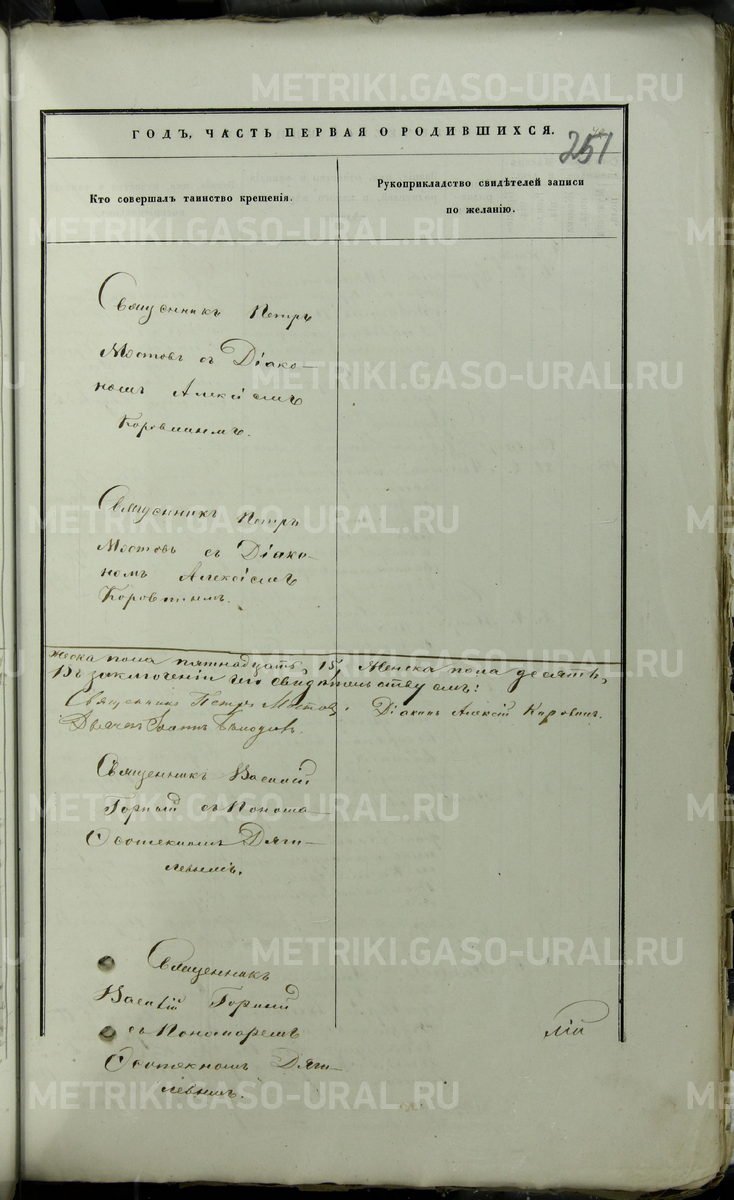 METRIKI.GASO-URAL.RU
ГОДЪ, ЧАСТЬ ПЕРВАЯ О РОДИВШИХСЯ.
251
Кто совершалъ таинство крещенія.
Рукоприкладство свидѣтелей записи
по желанію.
Священникъ Петръ
Мостовъ съ Діако-
номъ Алексіемъ
Коровинымъ.
Священникъ Петръ
Мостовъ съ Діако-
номъ Алексіемъ
Коровинымъ.
жеска пола пятнадцать, 15, Женска пола десять,
Въ заключеніи сего свидѣтельствуемъ:
Священникъ Петръ Мостовъ. Діаконъ Алексій Коровинъ.
Дьячекъ Іоаннъ
Священникъ Василій
Горный съ Понома
Дяги-
левымъ.
Священникъ
Василій Горный
съ Пономаремъ
Дяги-
левымъ.
лій